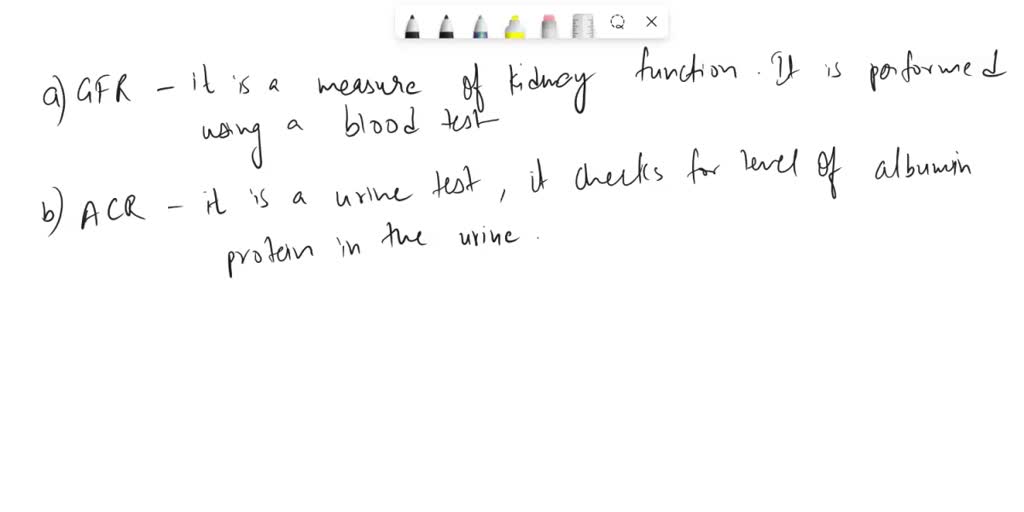 a) GFR - it is a measure of kidney function. It is performed
using a blood test
b) ACR - it is a urine test, it checks for level of albumin
protein in the urine.